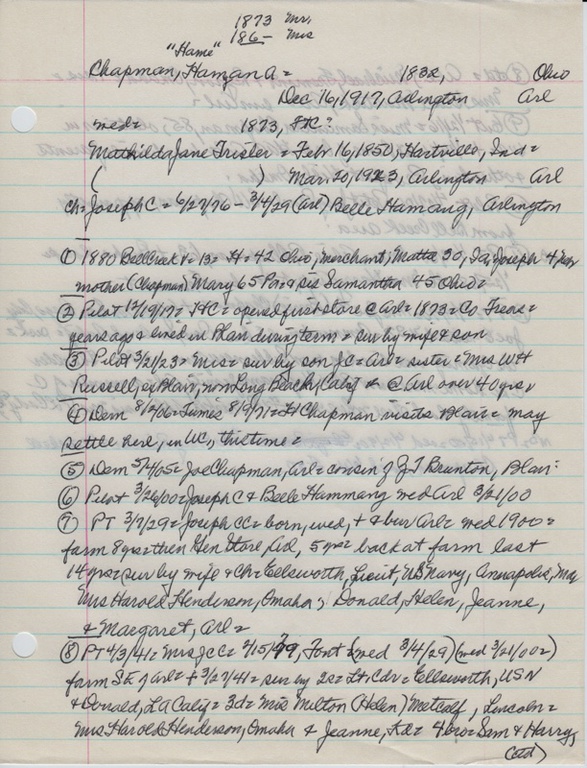 1873 Mr,
186- Mrs
"Hame"
Chapman, Hamzan A = 1838, Ohio
Dec 16, 1917, Arlington Arl
wed = 1873, HC?
Mathilda Jane Trisler = Feb 16, 1850, Hartville, Ind =
( ) Mar 20, 1923, Arlington Arl
ch = Joseph C = 6/27/76 - 3/4/29 (Arl) Belle Hamang, Arlington
① 1880 BellCreek P. 13 = H = 42 Ohio, merchant; Matta 30, Ia, Joseph 4,
mother (Chapman) Mary 65 Pa & sis Samantha 45 Ohio =
② Pilot 12/19/17 = HC = opened first store @ Arl = 1873 = Co Treas =
years ago & lived in Blair during term = sur by wife & son
③ Pilot 3/21/23 = Mrs = sur by son JC = Arl = sister = Mrs WH
Russell, ex Blair, now Long Beach, Calif & @ Arl over 40 yrs,
④ Dem 8/2/06 = Times 8/9/71 = H Chapman visits Blair = may
settle here, in WC, this time =
⑤ Dem 5/4/05 = Joe Chapman, Arl = cousin of J T Brunton, Blair =
⑥ Pilot 3/26/00 = Joseph C & Belle Hammang wed Arl 3/21/00
⑦ PT 3/7/29 = Joseph CC = born, wed, + & bur Arl = wed 1900 =
farm 8 yrs = then Gen Store, Arl, 5 yrs = back at farm last
14 yrs = sur by wife & ch = Ellsworth, Lieut, US Navy, Annapolis, Md
Mrs Harold Henderson, Omaha, Donald, Helen, Jeanne,
& Margaret, Arl =
⑧ PT 4/3/41 = Mrs JCC = 7/15/79, Font (wed 3/4/29) (wed 3/21/00 =)
farm SE of Arl = + 3/27/41 = sur by 2s = Lt. Cdr = Ellsworth, USN
& Donald, LA Calif = 3d = Mrs Milton (Helen) Metcalf, Lincoln =
Mrs Harold Henderson, Omaha & Jeanne, = 4 bro = Sam & Harry,